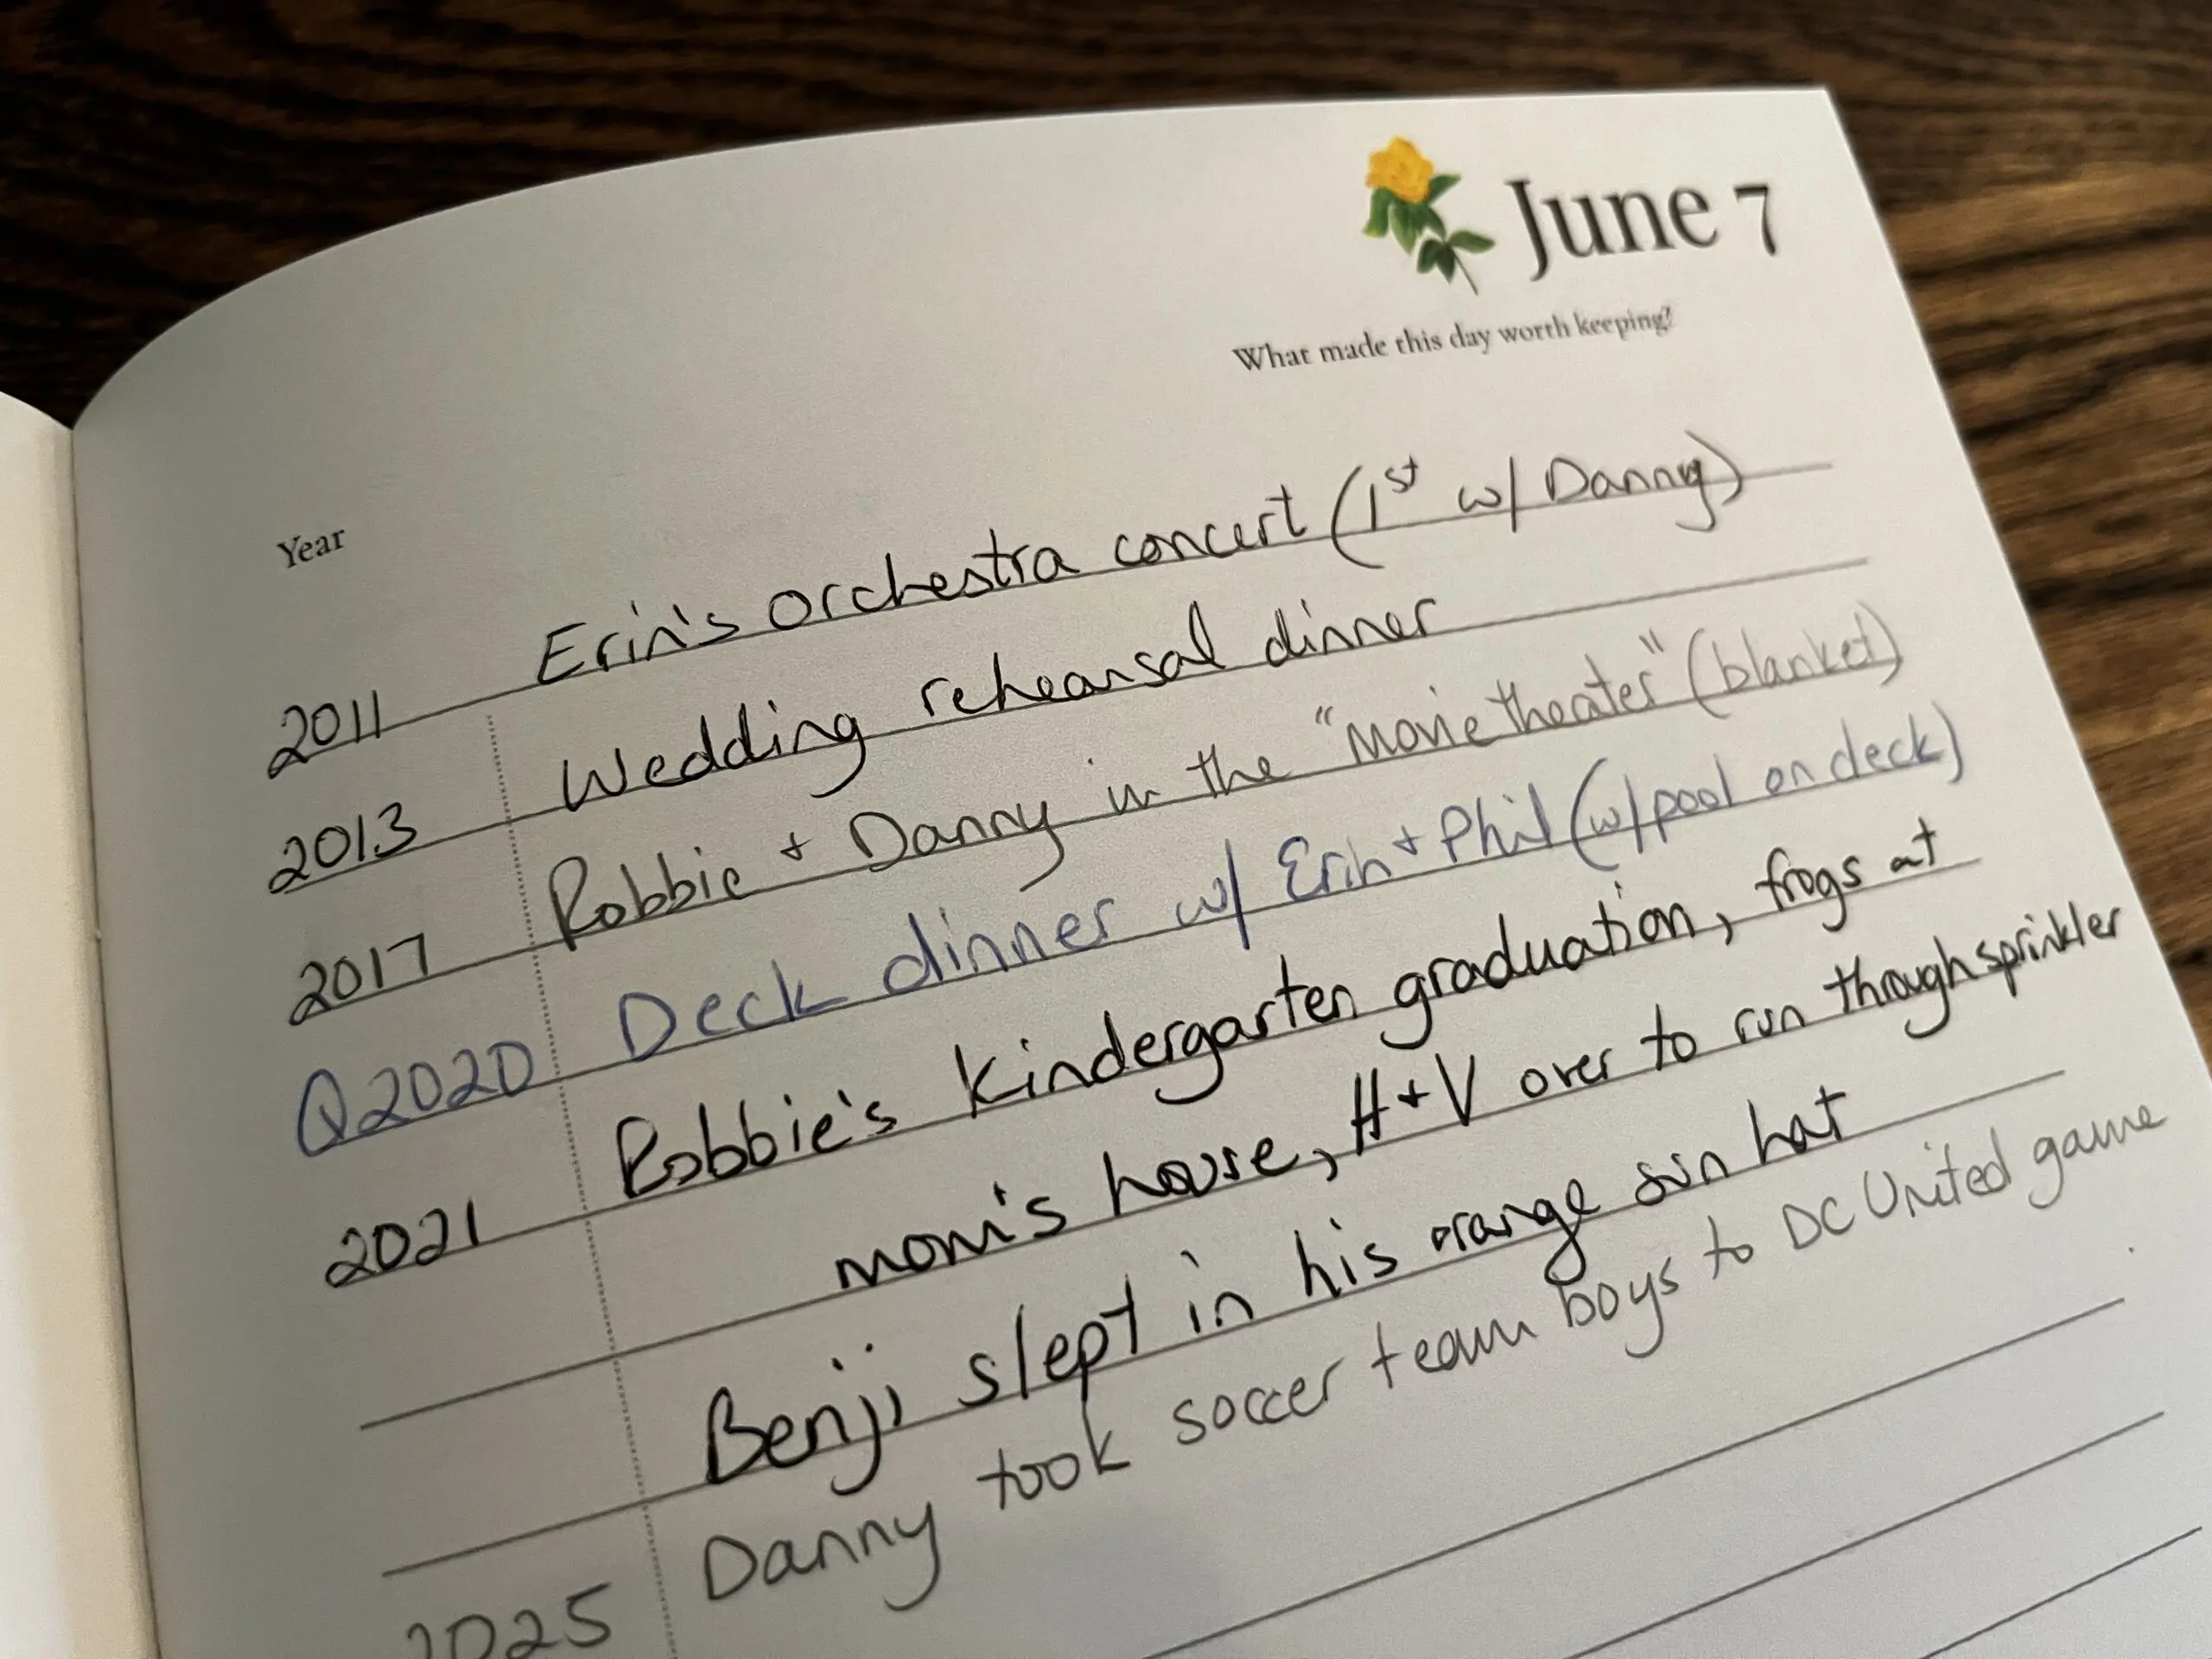 June 7
What made this day worth keeping?
Year
2011 Erin's orchestra concert (1st w/ Danny)
2013 Wedding rehearsal dinner
2017 Robbie + Danny in the "movie theater" (blanket)
Q2020 Deck dinner w/ Erin + Phil (w/ pool on deck)
2021 Robbie's Kindergarten graduation, frogs at
mom's house, H + V over to run through sprinkler
Benji slept in his orange sun hat
2025 Danny took soccer team boys to DC United game